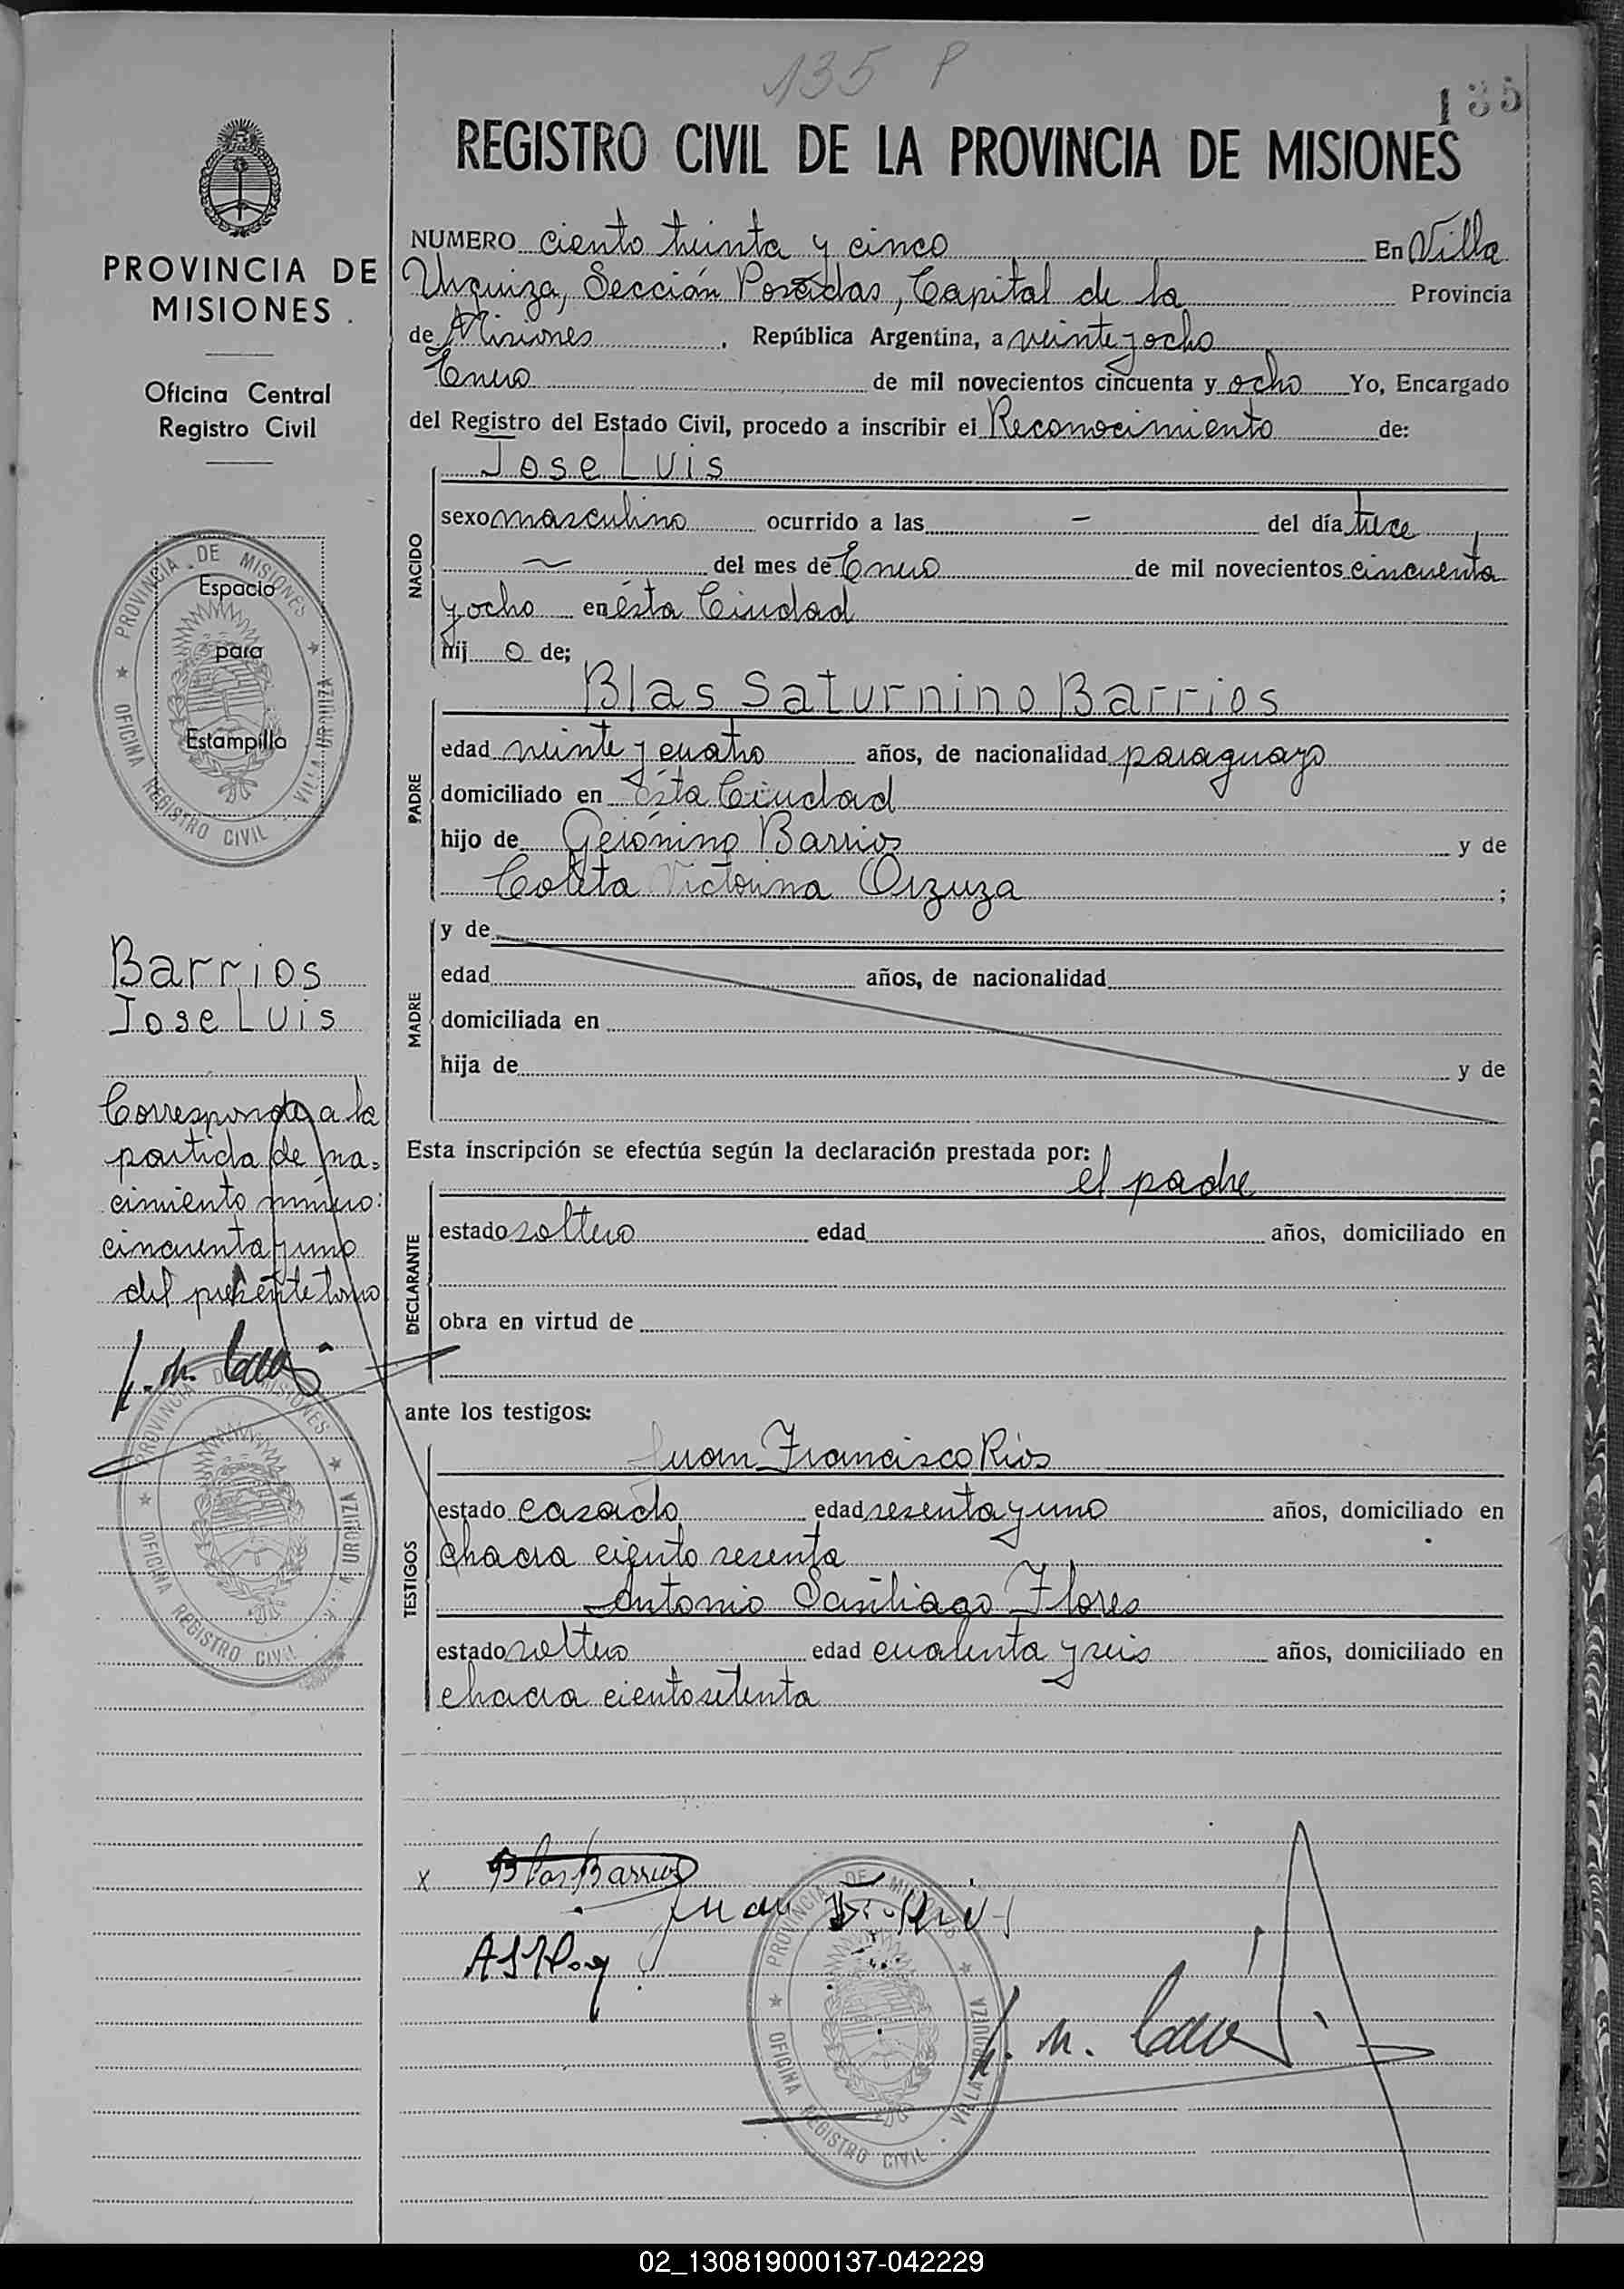 135 P
135
REGISTRO CIVIL DE LA PROVINCIA DE MISIONES
PROVINCIA DE
MISIONES.
Oficina Central
Registro Civil
Espacio
para
Estampilla
PROVINCIA DE MISIONES
OFICINA REGISTRO CIVIL - VILLA URQUIZA
Barrios
Jose Luis
Corresponde a la
partida de na-
cimiento número:
cincuenta y uno
del presente tomo
PROVINCIA DE MISIONES
OFICINA REGISTRO CIVIL - V. URQUIZA
NUMERO ciento treinta y cinco En Villa
Urquiza, Sección Posadas, Capital de la Provincia
de Misiones, República Argentina, a veinte y ocho
Enero de mil novecientos cincuenta y ocho Yo, Encargado
del Registro del Estado Civil, procedo a inscribir el Reconocimiento de:
NACIDO
Jose Luis
sexo masculino ocurrido a las - del día trece
del mes de Enero de mil novecientos cincuenta
y ocho en ésta Ciudad
hij o de;
PADRE
Blas Saturnino Barrios
edad veinte y cuatro años, de nacionalidad paraguayo
domiciliado en ésta Ciudad
hijo de Gerónimo Barrios y de
Coleta Victorina Orzuza ;
MADRE
y de
edad años, de nacionalidad
domiciliada en
hija de y de
Esta inscripción se efectúa según la declaración prestada por:
DECLARANTE
el padre
estado soltero edad años, domiciliado en
obra en virtud de
ante los testigos:
TESTIGOS
Juan Francisco Rios
estado casado edad sesenta y uno años, domiciliado en
chacra ciento sesenta
Antonio Santiago Flores
estado soltero edad cuarenta y seis años, domiciliado en
chacra ciento setenta
x Blas Barrios
Juan F. Rios
PROVINCIA DE MISIONES
OFICINA REGISTRO CIVIL - VILLA URQUIZA
02_130819000137-042229